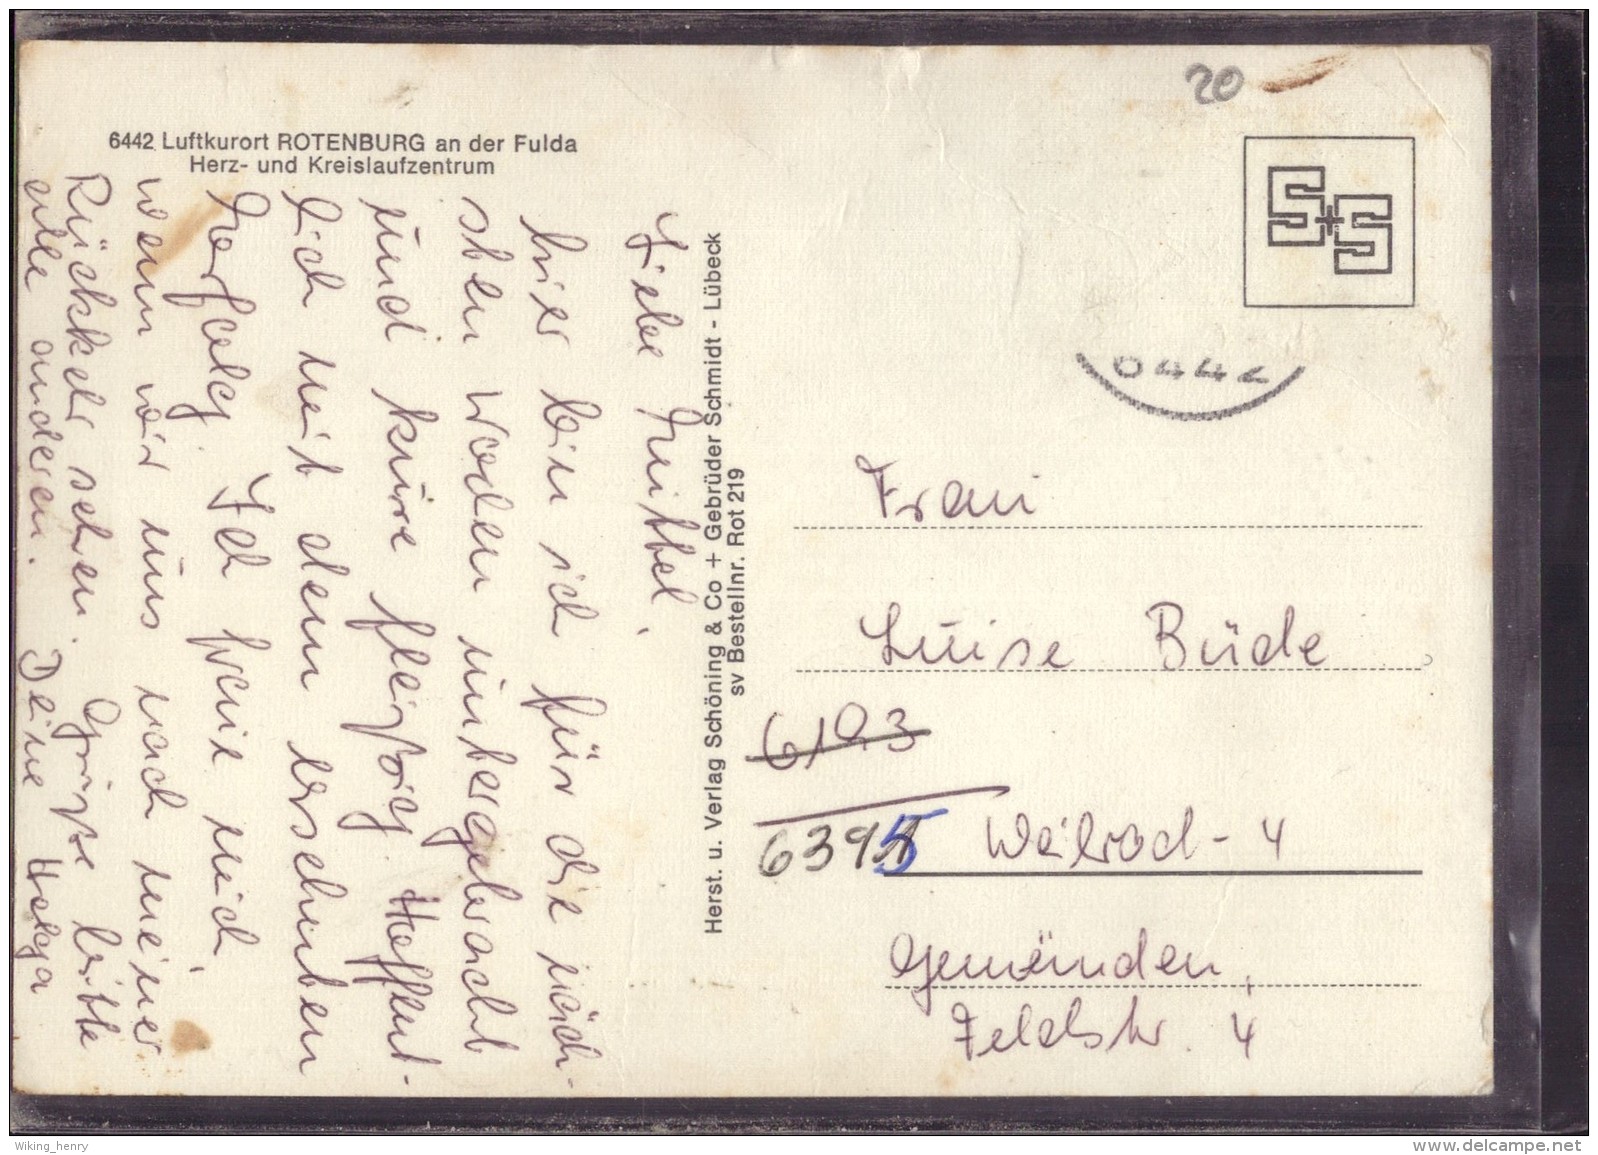 20
6442 Luftkurort ROTENBURG an der Fulda
Herz- und Kreislaufzentrum
S+S
6442
Liebe Muttel,
hier bin ich für die näch-
sten Wochen untergebracht
und kure fleißig. Hoffent-
lich mit dem erscheinten
Ich freue mich,
wenn wir uns nach meiner
Rückkehr sehen. Grüße bitte
alle anderen. Deine Helga
Herst. u. Verlag Schöning & Co + Gebrüder Schmidt - Lübeck
sv Bestellnr. Rot 219
Frau
Luise Büde
6193
6395 Weilrod-4
Gemünden,
Feldstr. 4
Wiking_henry
www.delcampe.net